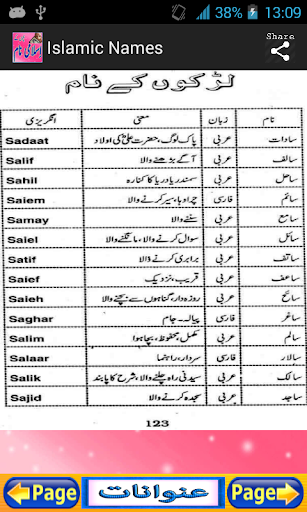 38% 13:09
Islamic Names
Share
لڑکوں کے نام
نام زبان معنی انگریزی
سادات عربی پاک لوگ، حضرت علیؓ کی اولاد Sadaat
سالف عربی آگے بڑھنے والا Salif
ساحل عربی سمندر یا دریا کا کنارہ Sahil
سائم فارسی چرواہا، سیر کرنے والا Saiem
سامع عربی سننے والا Samay
سائل عربی سوال کرنے والا، مانگنے والا Saiel
ساتف عربی برابری کرنے والا Satif
ساعف عربی قریب، نزدیک Saief
سائح عربی روزہ دار، گناہوں سے بچنے والا Saieh
ساغر فارسی پیالہ، جام Saghar
سالم عربی مکمل، محفوظ، بچا ہوا Salim
سالار فارسی سردار، راہنما Salaar
سالک عربی سیدھی راہ چلنے والا، شرع کا پابند Salik
ساجد عربی سجدہ کرنے والا Sajid
123
Page عنوانات Page